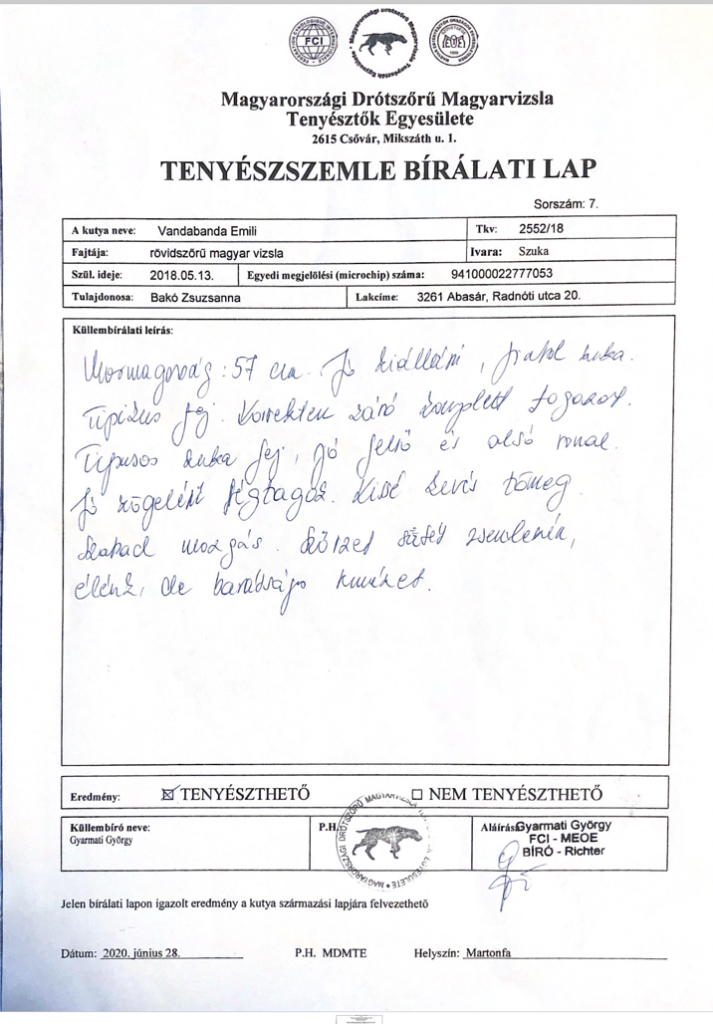 FCI
Magyarországi Drótszőrű Magyarvizsla
Tenyésztők Egyesülete
2615 Csővár, Mikszáth u. 1.
TENYÉSZSZEMLE BÍRÁLATI LAP
Sorszám: 7.
A kutya neve: Vandabanda Emili Tkv: 2552/18
Fajtája: rövidszőrű magyar vizsla Ivara: Szuka
Szül. ideje: 2018.05.13. Egyedi megjelölési (microchip) száma: 941000022777053
Tulajdonosa: Bakó Zsuzsanna Lakcíme: 3261 Abasár, Radnóti utca 20.
Küllembírálati leírás:
Marmagasság: 57 cm. Jó kiállású, szuka.
Tipikus fej. Korrekten záró komplett fogazat.
Típusos szuka fej, jó felső és alsó vonal.
Jó szögelésű végtagok. Kissé kevés tömeg.
Szabad mozgás. Szőrzet
élénk, de barátságos
Eredmény: ☒ TENYÉSZTHETŐ ☐ NEM TENYÉSZTHETŐ
Küllembíró neve: P.H. Aláírás:
Gyarmati György
Gyarmati György
FCI - MEOE
BÍRÓ - Richter
Jelen bírálati lapon igazolt eredmény a kutya származási lapjára felvezethető
Dátum: 2020. június 28. P.H. MDMTE Helyszín: Martonfa